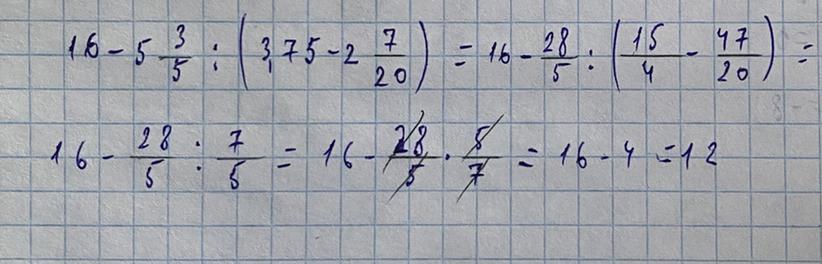 16 - 5 3/5 : (3,75 - 2 7/20) = 16 - 28/5 : (15/4 - 47/20) =
16 - 28/5 : 7/5 = 16 - 28/5 · 5/7 = 16 - 4 = 12